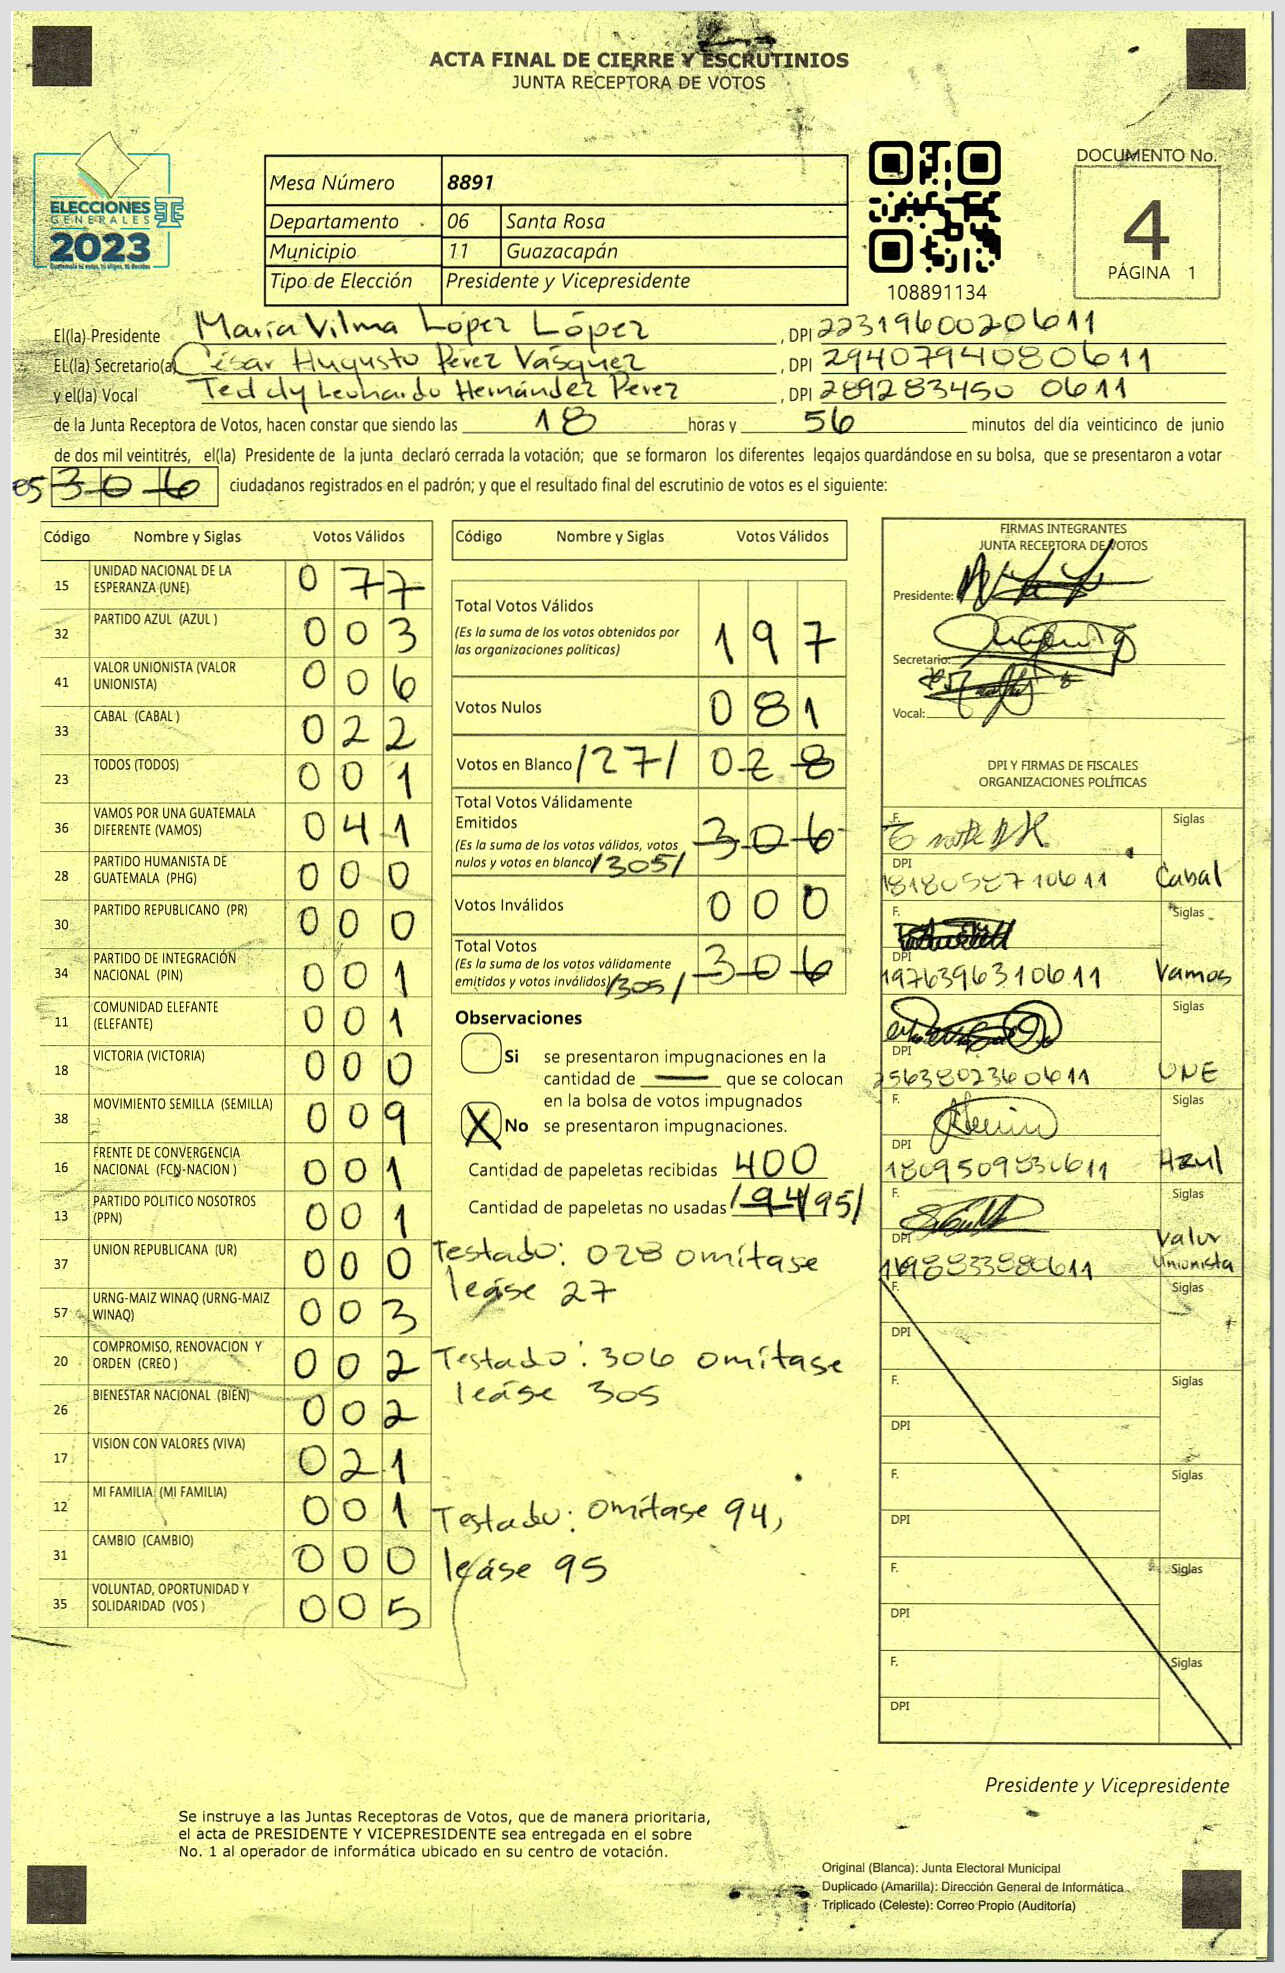 ACTA FINAL DE CIERRE Y ESCRUTINIOS
JUNTA RECEPTORA DE VOTOS
ELECCIONES
GENERALES
2023
Mesa Número 8891
Departamento 06 Santa Rosa
Municipio 11 Guazacapán
Tipo de Elección Presidente y Vicepresidente
108891134
DOCUMENTO No.
4
PÁGINA 1
El(la) Presidente María Vilma López López, DPI 2231960020611
EL(la) Secretario(a) César Augusto Pérez Vásquez, DPI 2940794080611
y el(la) Vocal Teddy Leonardo Hernández Pérez, DPI 289283450 0611
de la Junta Receptora de Votos, hacen constar que siendo las 18 horas y 56 minutos del día veinticinco de junio
de dos mil veintitrés, el(la) Presidente de la junta declaró cerrada la votación; que se formaron los diferentes legajos guardándose en su bolsa, que se presentaron a votar
306 ciudadanos registrados en el padrón; y que el resultado final del escrutinio de votos es el siguiente:
Código Nombre y Siglas Votos Válidos
15 UNIDAD NACIONAL DE LA ESPERANZA (UNE) 077
32 PARTIDO AZUL (AZUL ) 003
41 VALOR UNIONISTA (VALOR UNIONISTA) 006
33 CABAL (CABAL ) 022
23 TODOS (TODOS) 001
36 VAMOS POR UNA GUATEMALA DIFERENTE (VAMOS) 041
28 PARTIDO HUMANISTA DE GUATEMALA (PHG) 000
30 PARTIDO REPUBLICANO (PR) 000
34 PARTIDO DE INTEGRACIÓN NACIONAL (PIN) 001
11 COMUNIDAD ELEFANTE (ELEFANTE) 001
18 VICTORIA (VICTORIA) 000
38 MOVIMIENTO SEMILLA (SEMILLA) 009
16 FRENTE DE CONVERGENCIA NACIONAL (FCN-NACION ) 001
13 PARTIDO POLITICO NOSOTROS (PPN) 001
37 UNION REPUBLICANA (UR) 000
57 URNG-MAIZ WINAQ (URNG-MAIZ WINAQ) 003
20 COMPROMISO, RENOVACION Y ORDEN (CREO ) 002
26 BIENESTAR NACIONAL (BIEN) 002
17 VISION CON VALORES (VIVA) 021
12 MI FAMILIA (MI FAMILIA) 001
31 CAMBIO (CAMBIO) 000
35 VOLUNTAD, OPORTUNIDAD Y SOLIDARIDAD (VOS ) 005
Código Nombre y Siglas Votos Válidos
Total Votos Válidos 197
(Es la suma de los votos obtenidos por
las organizaciones políticas)
Votos Nulos 081
Votos en Blanco /27/ 028
Total Votos Válidamente
Emitidos 306
(Es la suma de los votos válidos, votos
nulos y votos en blanco) /305/
Votos Inválidos 000
Total Votos 306
(Es la suma de los votos válidamente
emitidos y votos inválidos) /305/
Observaciones
Si se presentaron impugnaciones en la
cantidad de que se colocan
en la bolsa de votos impugnados
X No se presentaron impugnaciones.
Cantidad de papeletas recibidas 400
Cantidad de papeletas no usadas /94/95/
Testado: 028 omítase
leáse 27
Testado: 306 omítase
leáse 305
Testado: omítase 94,
leáse 95
FIRMAS INTEGRANTES
JUNTA RECEPTORA DE VOTOS
Presidente:
Secretario:
Vocal:
DPI Y FIRMAS DE FISCALES
ORGANIZACIONES POLÍTICAS
F. Siglas
DPI 1818058710611 Cabal
F. Siglas
DPI 1976396310611 Vamos
Siglas
DPI 2563802360611 UNE
F. Siglas
DPI 1809509830611 Azul
F. Siglas
DPI Valor Unionista
F. Siglas
DPI
F. Siglas
DPI
F. Siglas
DPI
F. Siglas
DPI
F. Siglas
DPI
Presidente y Vicepresidente
Se instruye a las Juntas Receptoras de Votos, que de manera prioritaria,
el acta de PRESIDENTE Y VICEPRESIDENTE sea entregada en el sobre
No. 1 al operador de informática ubicado en su centro de votación.
Original (Blanca): Junta Electoral Municipal
Duplicado (Amarilla): Dirección General de Informática
Triplicado (Celeste): Correo Propio (Auditoría)